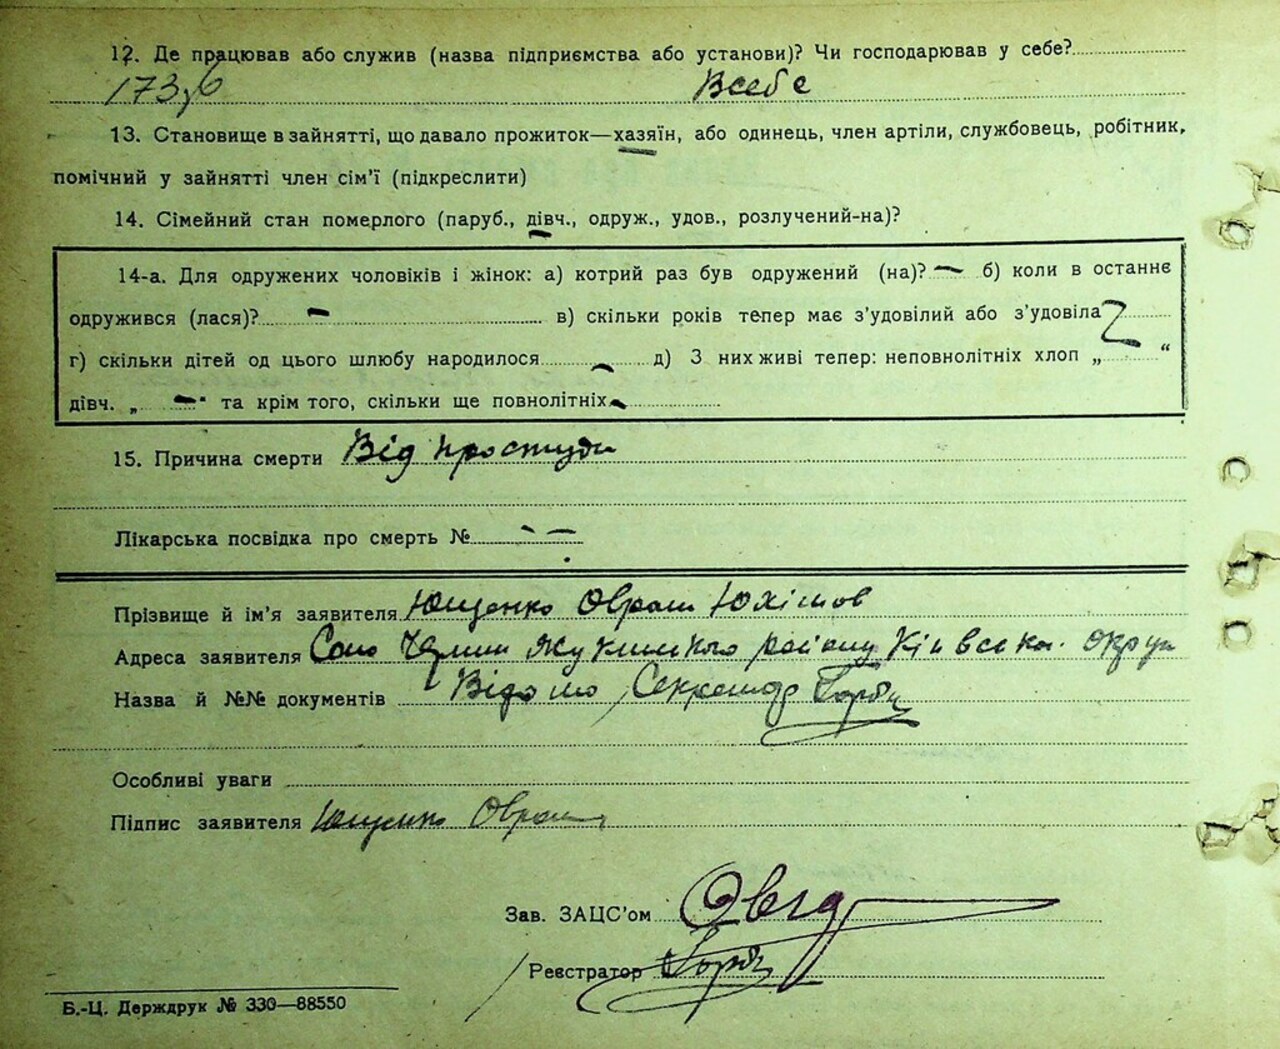 12. Де працював або служив (назва підприємства або установи)? Чи господарював у себе?
Всебе
13. Становище в зайнятті, що давало прожиток—хазяїн, або одинець, член артіли, службовець, робітник,
помічний у зайнятті член сім'ї (підкреслити)
14. Сімейний стан померлого (паруб., дівч., одруж., удов., розлучений-на)?
14-а. Для одружених чоловіків і жінок: а) котрий раз був одружений (на)? — б) коли в останнє
одружився (лася)? — в) скільки років тепер має з'удовілий або з'удовіла
г) скільки дітей од цього шлюбу народилося — д) З них живі тепер: неповнолітніх хлоп „ “
дівч. „ — " та крім того, скільки ще повнолітніх —
15. Причина смерти Від простуди
Лікарська посвідка про смерть № — —
Прізвище й ім'я заявителя Ющенко Оврам Юхімов
Адреса заявителя Село району Київської округи
Назва й №№ документів Відомо Секретар
Особливі уваги
Підпис заявителя Ющенко Оврам
Зав. ЗАЦС'ом
Реєстратор
Б.-Ц. Держдрук № 330—88550